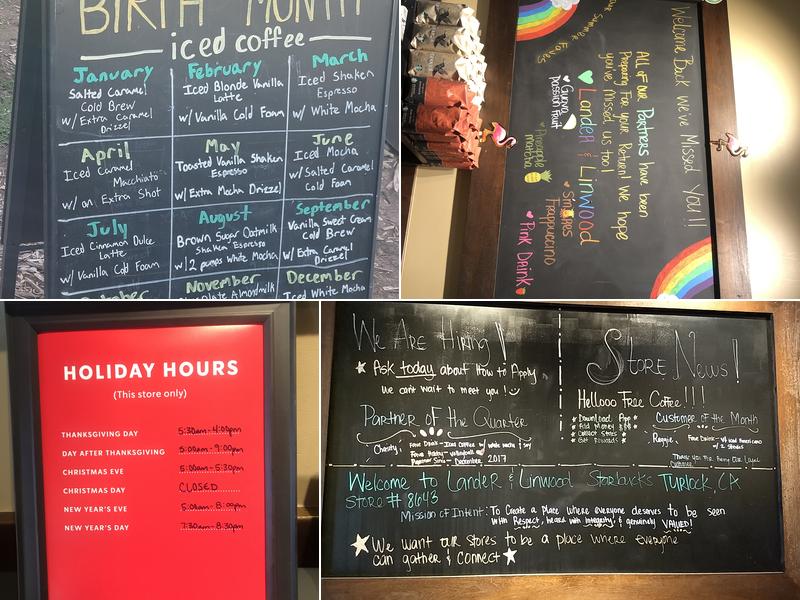 BIRTH MONTH
iced coffee
January
Salted Caramel
Cold Brew
w/ Extra Caramel
Drizzel
February
Iced Blonde Vanilla
Latte
w/ Vanilla Cold Foam
March
Iced Shaken
Espresso
w/ White Mocha
April
Iced Caramel
Macchiato
w/ an Extra Shot
May
Toasted Vanilla Shaken
Espresso
w/ Extra Mocha Drizzel
June
Iced Mocha
w/ Salted Caramel
Cold Foam
July
Iced Cinnamon Dulce
Latte
w/ Vanilla Cold Foam
August
Brown Sugar Oatmilk
Shaken Espresso
w/ 2 pumps White Mocha
September
Vanilla Sweet Cream
Cold Brew
w/ Extra Caramel
Drizzel
November
Almondmilk
December
Iced White Mocha
Welcome Back We've Missed You!!
All of our Partners have been
Preparing for your Return! We hope
you've Missed us too!
Lander & Linwood
Guava
Passion Fruit
Pineapple
matcha
Frappuccino
Pink Drink
HOLIDAY HOURS
(This store only)
THANKSGIVING DAY 5:30am-4:00pm
DAY AFTER THANKSGIVING 5:00am-9:00pm
CHRISTMAS EVE 5:00am-5:30pm
CHRISTMAS DAY CLOSED
NEW YEAR'S EVE 5:00am-8:00pm
NEW YEAR'S DAY 7:30am-8:30pm
We Are Hiring!
Ask today about How to Apply
We can't wait to meet you!
Partner of the Quarter
Chasity, Fave Drink-Iced Coffee w/ white mocha & soy
Fave Hobby-volleyball
Partner Since-December 2017
Store News!
Hellooo Free Coffee!!!
Download App
Add Money $$$
Collect Stars
Get Rewards
Customer of the Month
Reggie, Fave Drink-
Thank you for being our Loyal
Customer
Welcome to Lander & Linwood Starbucks Turlock, CA
Store # 8643
Mission of Intent: To Create a Place where everyone deserves to be seen
with Respect, heard with Integrity, & genuinely VALUED!
We want our Stores to be a place where everyone
can gather & Connect